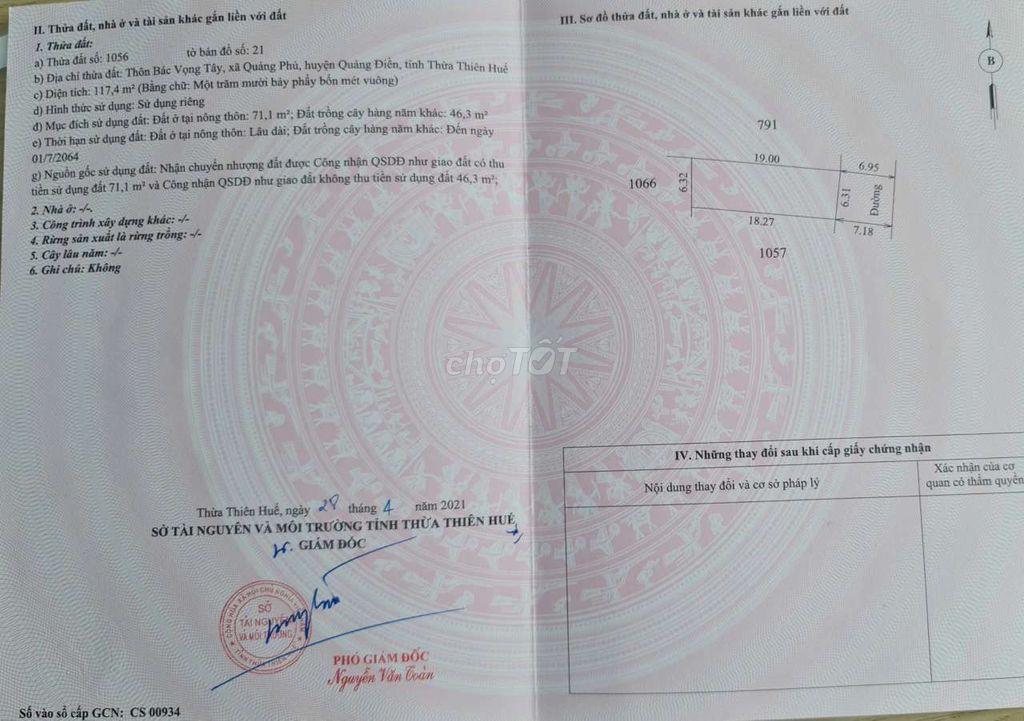 II. Thửa đất, nhà ở và tài sản khác gắn liền với đất
1. Thửa đất:
a) Thửa đất số: 1056 tờ bản đồ số: 21
b) Địa chỉ thửa đất: Thôn Bác Vọng Tây, xã Quảng Phú, huyện Quảng Điền, tỉnh Thừa Thiên Huế
c) Diện tích: 117,4 m² (Bằng chữ: Một trăm mười bảy phẩy bốn mét vuông)
d) Hình thức sử dụng: Sử dụng riêng
đ) Mục đích sử dụng đất: Đất ở tại nông thôn: 71,1 m²; Đất trồng cây hàng năm khác: 46,3 m²
e) Thời hạn sử dụng đất: Đất ở tại nông thôn: Lâu dài; Đất trồng cây hàng năm khác: Đến ngày
01/7/2064
g) Nguồn gốc sử dụng đất: Nhận chuyển nhượng đất được Công nhận QSDĐ như giao đất có thu
tiền sử dụng đất 71,1 m² và Công nhận QSDĐ như giao đất không thu tiền sử dụng đất 46,3 m²;
2. Nhà ở: -/-.
3. Công trình xây dựng khác: -/-
4. Rừng sản xuất là rừng trồng: -/-
5. Cây lâu năm: -/-
6. Ghi chú: Không
Thừa Thiên Huế, ngày 28 tháng 4 năm 2021
SỞ TÀI NGUYÊN VÀ MÔI TRƯỜNG TỈNH THỪA THIÊN HUẾ
GIÁM ĐỐC
SỞ
TÀI NGUYÊN
VÀ MÔI TRƯỜNG
PHÓ GIÁM ĐỐC
Nguyễn Văn Toàn
Số vào sổ cấp GCN: CS 00934
III. Sơ đồ thửa đất, nhà ở và tài sản khác gắn liền với đất
B
791
19.00
6.95
1066
6.32
6.31
Đường
18.27
7.18
1057
chợTỐT
IV. Những thay đổi sau khi cấp giấy chứng nhận
Nội dung thay đổi và cơ sở pháp lý
Xác nhận của cơ
quan có thẩm quyền